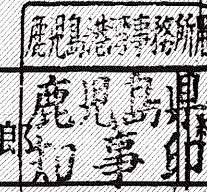 鹿児島港湾事務所
鹿児島県
知事印
郎